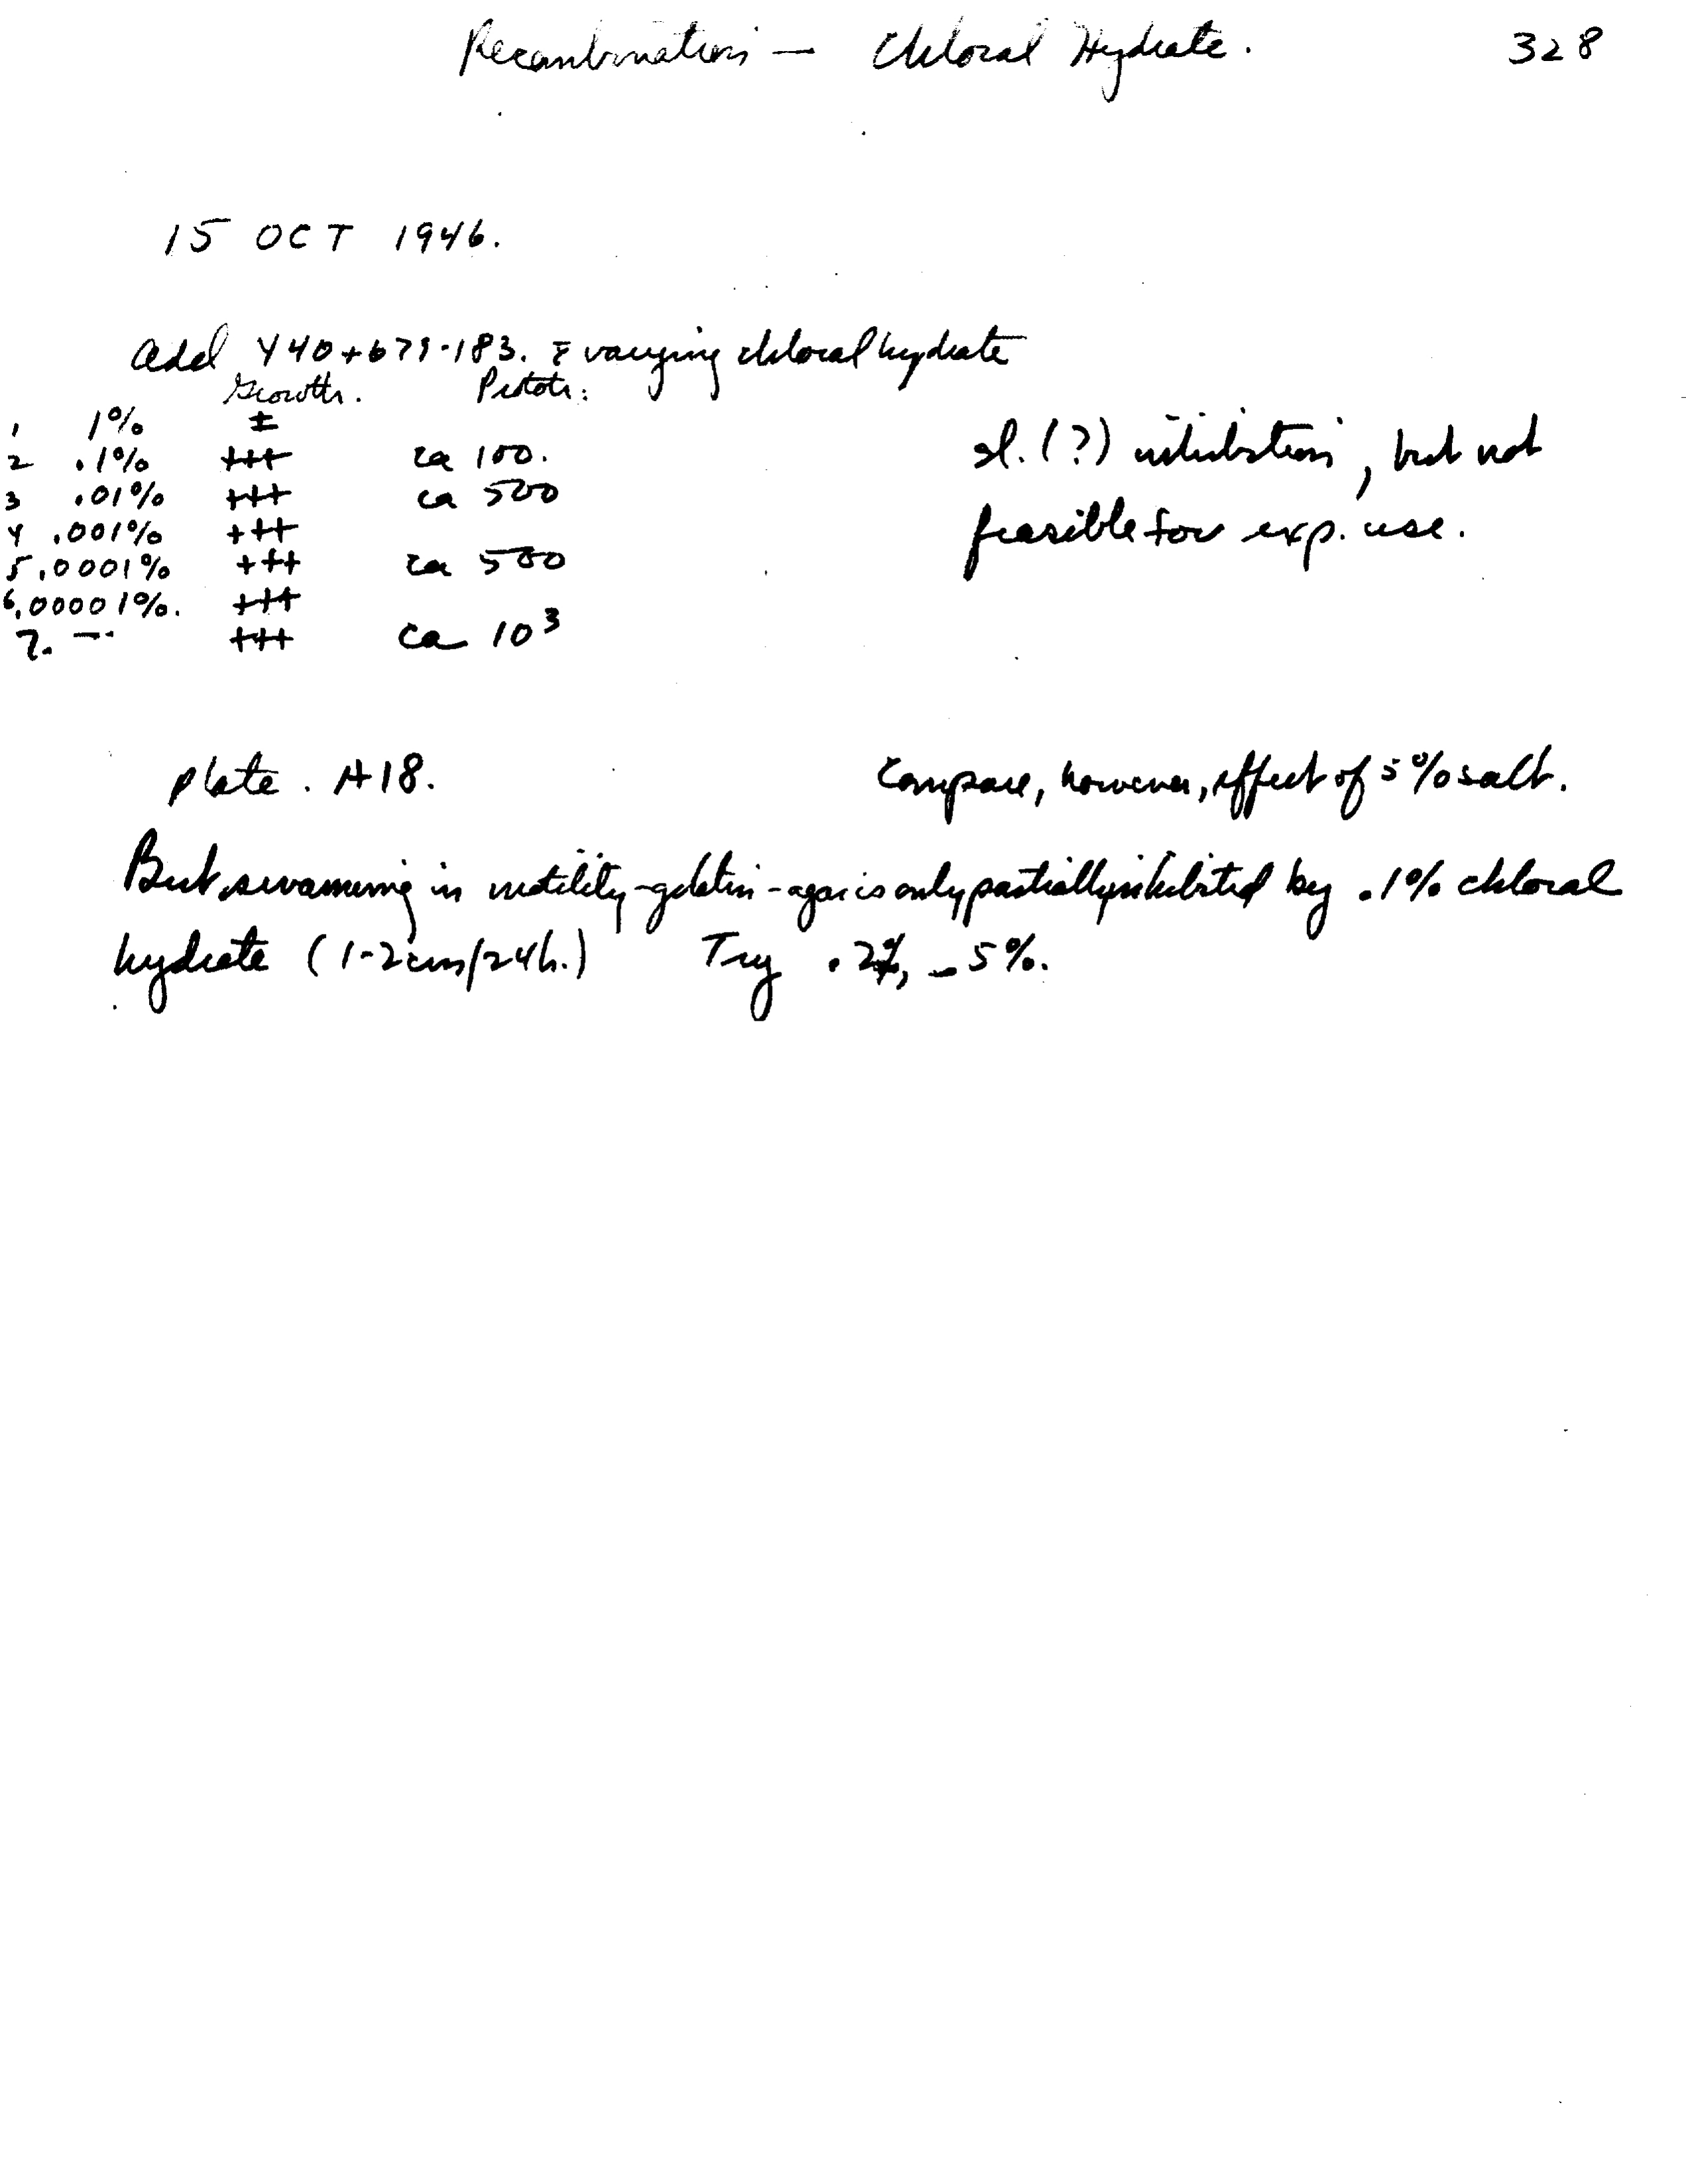 Recombination — Chloral Hydrate. 328
15 OCT 1946.
Add Y40+679-183. c̄ varying chloral hydrate
Growth. Prototr:
1 1% ±
2 .1% +++ ca 100.
3 .01% +++ ca 500
4 .001% +++
5 .0001% +++ ca 500
6 .00001%. +++
7. — +++ ca 10³
sl. (?) inhibition, but not
feasible for exp. use.
Plate. A18.
Compare, however, effect of 5% salt.
But swarming in motility-gelatin-agar is only partially inhibited by .1% chloral
hydrate (1-2cm/24h.) Try .2%, .5%.